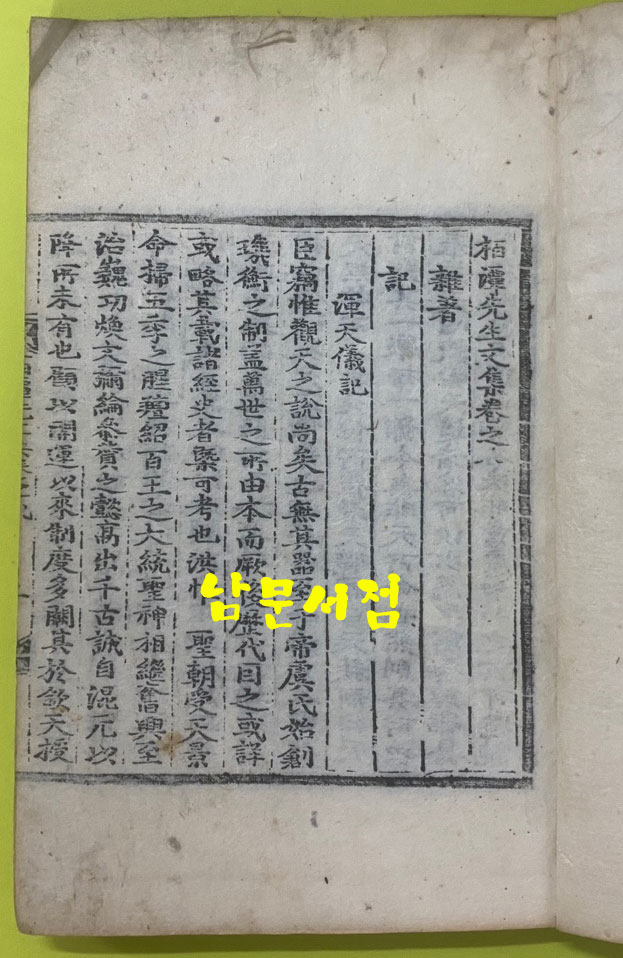 栢潭先生文集卷之
雜著
記
渾天儀記
臣竊惟觀天之說尚矣古無其器至于帝虞氏始創
璣衡之制盖萬世之所由本而厥後歷代因之或詳
或略其載諸經史者槩可考也洪惟 聖朝受天景
命掃五季之腥羶紹百王之大統聖神相繼奮興至
治巍功煥文彌綸參贊之懿高出千古誠自混元以
降所未有也顧以開運以來制度多闕其於欽天授
남문서점